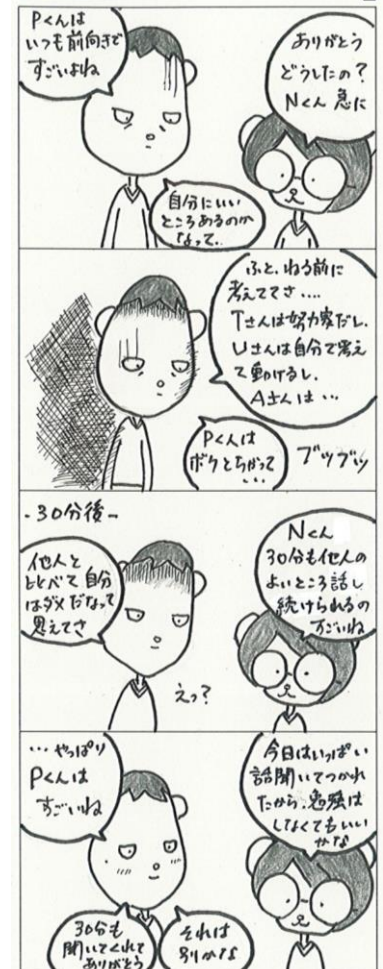 Pくんは
いつも前向きで
すごいよね
ありがとう
どうしたの?
Nくん 急に
自分にいい
ところあるのか
なって..
ふと、ねる前に
考えててさ....
Tさんは努力家だし、
Uさんは自分で考え
て動けるし、
Aさんは…
Pくんは
ボクとちがって
...
ブツブツ
-30分後-
他人と
くらべて自分
はダメだなって
思えてさ
Nくん
30分も他人の
よいところ話し
続けられるの
すごいね
えっ?
…やっぱり
Pくんは
すごいね
今日はいっぱい
話聞いてつかれ
たから、勉強は
しなくてもいい
かな
30分も
聞いてくれて
ありがとう
それは
別かな